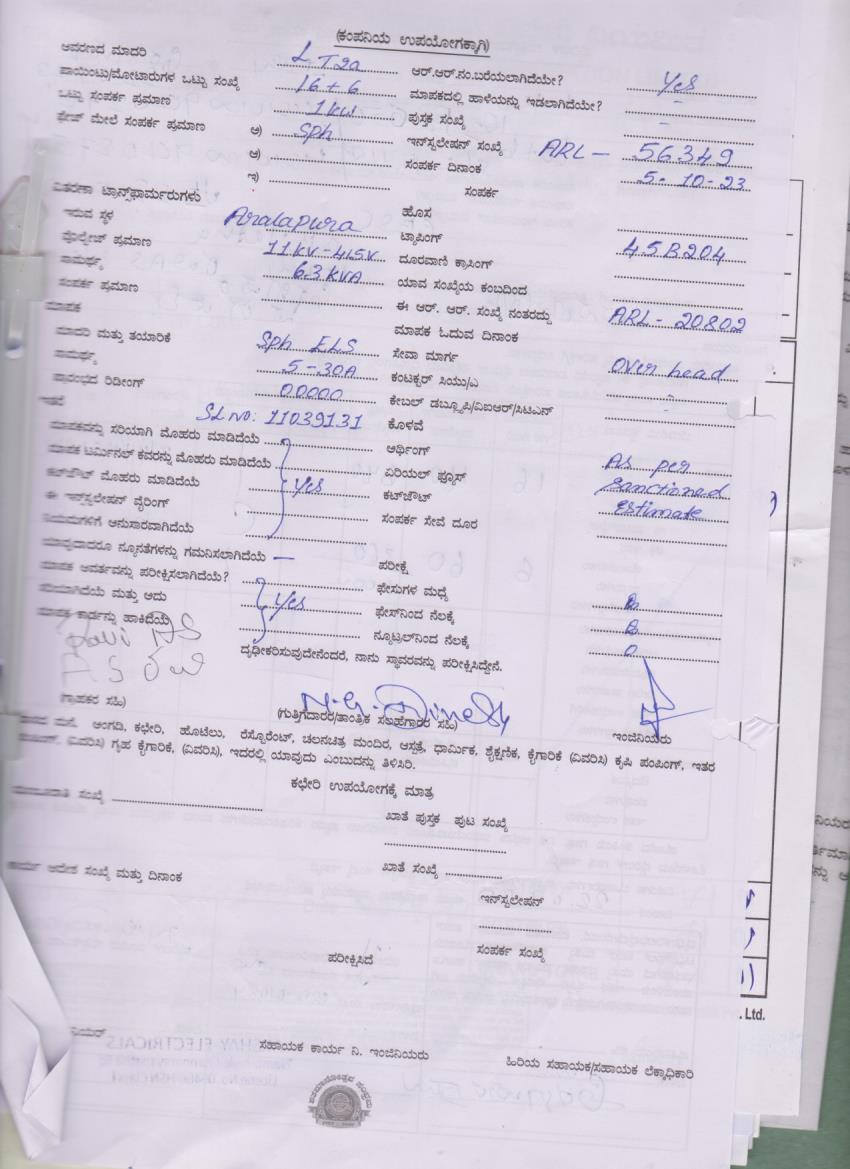 (ಕಂಪನಿಯ ಉಪಯೋಗಕ್ಕಾಗಿ)
ಆವರಣದ ಮಾದರಿ LT2a ಆರ್.ಆರ್.ನಂ.ಬರೆಯಲಾಗಿದೆಯೇ? Yes
ಪಾಯಿಂಟು/ಮೋಟಾರುಗಳ ಒಟ್ಟು ಸಂಖ್ಯೆ 16+6 ಮಾಪಕದಲ್ಲಿ ಹಾಳೆಯನ್ನು ಇಡಲಾಗಿದೆಯೇ? -
ಒಟ್ಟು ಸಂಪರ್ಕ ಪ್ರಮಾಣ 1kw ಪುಸ್ತಕ ಸಂಖ್ಯೆ -
ಫೇಜ್ ಮೇಲೆ ಸಂಪರ್ಕ ಪ್ರಮಾಣ ಅ) Sph ಇನ್‌ಸ್ಟಲೇಷನ್ ಸಂಖ್ಯೆ ARL - 56349
ಆ) ಸಂಪರ್ಕ ದಿನಾಂಕ 5-10-23
ಇ) ಸಂಪರ್ಕ
ವಿತರಣಾ ಟ್ರಾನ್ಸ್‌ಫಾರ್ಮರುಗಳು ಹೊಸ
ಇರುವ ಸ್ಥಳ Aralapura ಟ್ಯಾಪಿಂಗ್
ವೋಲ್ಟೇಜ್ ಪ್ರಮಾಣ 11KV-415V ದೂರವಾಣಿ ಕ್ರಾಸಿಂಗ್ 45B204
ಸಾಮರ್ಥ್ಯ 63KVA ಯಾವ ಸಂಖ್ಯೆಯ ಕಂಬದಿಂದ
ಸಂಪರ್ಕ ಪ್ರಮಾಣ ಈ ಆರ್. ಆರ್. ಸಂಖ್ಯೆ ನಂತರದ್ದು ARL-20802
ಮಾಪಕ ಮಾಪಕ ಓದುವ ದಿನಾಂಕ
ಮಾದರಿ ಮತ್ತು ತಯಾರಿಕೆ Sph ELS ಸೇವಾ ಮಾರ್ಗ Over head
ಸಾಮರ್ಥ್ಯ 5-30A ಕಂಟಕ್ಟರ್ ಸಿಯು/ಎ
ಪ್ರಾರಂಭದ ರಿಡೀಂಗ್ 00000 ಕೇಬಲ್ ಡಬ್ಲ್ಯೂಪಿ/ವಿಐಆರ್/ಸಿಟಿಎನ್
ಇತರೆ SLNO: 11039131 ಕೊಳವೆ
ಮಾಪಕವನ್ನು ಸರಿಯಾಗಿ ಮೊಹರು ಮಾಡಿದೆಯೆ ಅರ್ಥಿಂಗ್
ಮಾಪಕ ಟರ್ಮಿನಲ್ ಕವರನ್ನು ಮೊಹರು ಮಾಡಿದೆಯೆ ಏರಿಯಲ್ ಫ್ಯೂಸ್ As per
ಕಟ್‌ಔಟ್ ಮೊಹರು ಮಾಡಿದೆಯೆ Yes ಕಟ್‌ಔಟ್ Sanctioned
ಈ ಇನ್‌ಸ್ಟಲೇಷನ್ ವೈರಿಂಗ್ ಸಂಪರ್ಕ ಸೇವೆ ದೂರ Estimate
ನಿಯಮಗಳಿಗೆ ಅನುಸಾರವಾಗಿದೆಯೆ
ಯಾವುದಾದರೂ ನ್ಯೂನತೆಗಳನ್ನು ಗಮನಿಸಲಾಗಿದೆಯೆ - ಪರೀಕ್ಷೆ
ಮಾಪಕ ಆವರ್ತವನ್ನು ಪರೀಕ್ಷಿಸಲಾಗಿದೆಯೆ? ಫೇಸುಗಳ ಮಧ್ಯೆ
ಸಮವಾಗಿದೆಯೆ ಮತ್ತು ಅದು Yes ಫೇಸ್‌ನಿಂದ ನೆಲಕ್ಕೆ
ಮಾಪಕ ಕಾರ್ಡನ್ನು ಹಾಕಿದೆಯೆ ನ್ಯೂಟ್ರಲ್‌ನಿಂದ ನೆಲಕ್ಕೆ 0
ದೃಢೀಕರಿಸುವುದೇನೆಂದರೆ, ನಾನು ಸ್ಥಾವರವನ್ನು ಪರೀಕ್ಷಿಸಿದ್ದೇನೆ.
(ಗ್ರಾಹಕರ ಸಹಿ) (ಗುತ್ತಿಗೆದಾರರ/ತಾಂತ್ರಿಕ ಸಲಹೆಗಾರರ ಸಹಿ) ಇಂಜಿನಿಯರು
ಮನೆ, ಅಂಗಡಿ, ಕಛೇರಿ, ಹೋಟೆಲು, ರೆಸ್ಟೊರೆಂಟ್, ಚಲನಚಿತ್ರ ಮಂದಿರ, ಆಸ್ಪತ್ರೆ, ಧಾರ್ಮಿಕ, ಶೈಕ್ಷಣಿಕ, ಕೈಗಾರಿಕೆ (ವಿವರಿಸಿ) ಕೃಷಿ ಪಂಪಿಂಗ್, ಇತರ
(ವಿವರಿಸಿ) ಗೃಹ ಕೈಗಾರಿಕೆ, (ವಿವರಿಸಿ), ಇದರಲ್ಲಿ ಯಾವುದು ಎಂಬುದನ್ನು ತಿಳಿಸಿರಿ.
ಕಛೇರಿ ಉಪಯೋಗಕ್ಕೆ ಮಾತ್ರ
ಸಂಖ್ಯೆ ಖಾತೆ ಪುಸ್ತಕ ಪುಟ ಸಂಖ್ಯೆ
ಕಾರ್ಯ ಆದೇಶ ಸಂಖ್ಯೆ ಮತ್ತು ದಿನಾಂಕ ಖಾತೆ ಸಂಖ್ಯೆ
ಇನ್‌ಸ್ಟಲೇಷನ್
ಪರೀಕ್ಷಿಸಿದೆ ಸಂಪರ್ಕ ಸಂಖ್ಯೆ
. Ltd.
ಸಹಾಯಕ ಕಾರ್ಯ ನಿ. ಇಂಜಿನಿಯರು ಹಿರಿಯ ಸಹಾಯಕ/ಸಹಾಯಕ ಲೆಕ್ಕಾಧಿಕಾರಿ